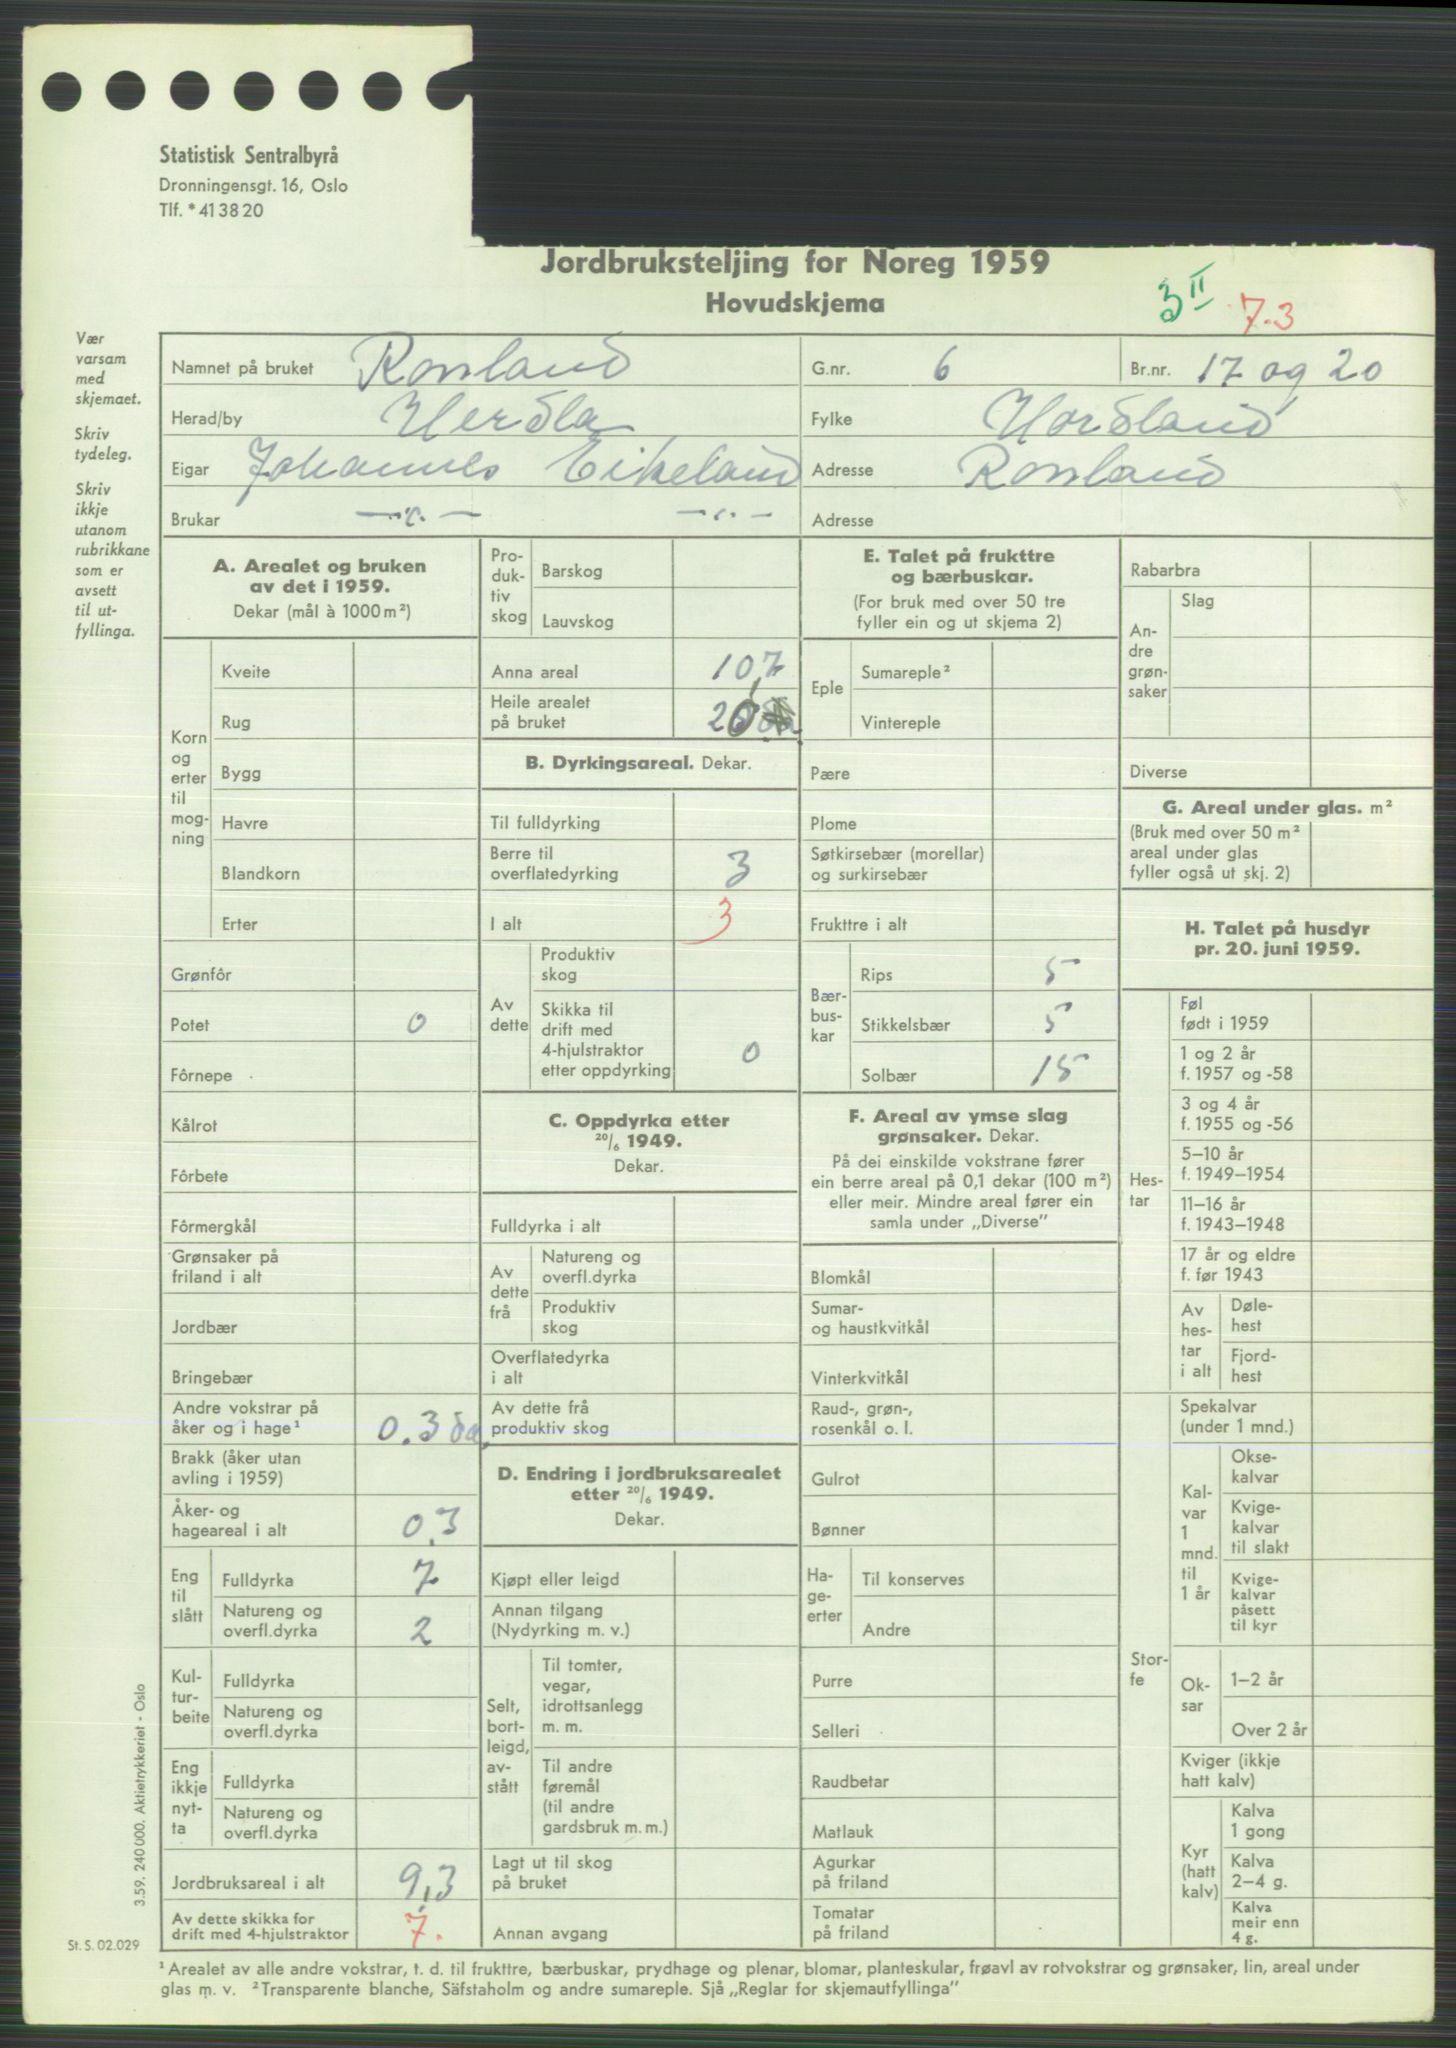 Statistisk Sentralbyrå
Dronningensgt. 16, Oslo
Tlf. * 41 38 20
Jordbruksteljing for Noreg 1959
Hovudskjema
3 II 7.3
Vær
varsam
med
skjemaet.
Skriv
tydeleg.
Skriv
ikkje
utanom
rubrikkane
som er
avsett
til ut-
fyllinga.
Namnet på bruket Rossland G.nr. 6 Br.nr. 17 og 20
Herad/by Herdla Fylke Hordland
Eigar Johannes Eikeland Adresse Rossland
Brukar —"— —"— Adresse
A. Arealet og bruken
av det i 1959.
Dekar (mål à 1000 m²)
Korn
og
erter
til
mog-
ning
Kveite
Rug
Bygg
Havre
Blandkorn
Erter
Grønfôr
Potet 0
Fôrnepe
Kålrot
Fôrbete
Fôrmergkål
Grønsaker på
friland i alt
Jordbær
Bringebær
Andre vokstrar på
åker og i hage¹ 0.3 da.
Brakk (åker utan
avling i 1959)
Åker- og
hageareal i alt 0,3
Eng
til
slått
Fulldyrka 7
Natureng og
overfl.dyrka 2
Kul-
tur-
beite
Fulldyrka
Natureng og
overfl.dyrka
Eng
ikkje
nyt-
ta
Fulldyrka
Natureng og
overfl.dyrka
Jordbruksareal i alt 9,3
Av dette skikka for
drift med 4-hjulstraktor 7.
Pro-
duk-
tiv
skog
Barskog
Lauvskog
Anna areal 10,7
Heile arealet
på bruket 20
B. Dyrkingsareal. Dekar.
Til fulldyrking
Berre til
overflatedyrking 3
I alt 3
Av
dette
Produktiv
skog
Skikka til
drift med
4-hjulstraktor
etter oppdyrking 0
C. Oppdyrka etter
20/6 1949.
Dekar.
Fulldyrka i alt
Av
dette
frå
Natureng og
overfl.dyrka
Produktiv
skog
Overflatedyrka
i alt
Av dette frå
produktiv skog
D. Endring i jordbruksarealet
etter 20/6 1949.
Dekar.
Kjøpt eller leigd
Annan tilgang
(Nydyrking m. v.)
Selt,
bort-
leigd,
av-
stått
Til tomter,
vegar,
idrottsanlegg
m. m.
Til andre
føremål
(til andre
gardsbruk m. m.)
Lagt ut til skog
på bruket
Annan avgang
E. Talet på frukttre
og bærbuskar.
(For bruk med over 50 tre
fyller ein og ut skjema 2)
Eple
Sumareple²
Vintereple
Pære
Plome
Søtkirsebær (morellar)
og surkirsebær
Frukttre i alt
Bær-
bus-
kar
Rips 5
Stikkelsbær 5
Solbær 15
F. Areal av ymse slag
grønsaker. Dekar.
På dei einskilde vokstrane fører
ein berre areal på 0,1 dekar (100 m²)
eller meir. Mindre areal fører ein
samla under „Diverse”
Blomkål
Sumar-
og haustkvitkål
Vinterkvitkål
Raud-, grøn-,
rosenkål o. l.
Gulrot
Bønner
Ha-
ge-
erter
Til konserves
Andre
Purre
Selleri
Raudbetar
Matlauk
Agurkar
på friland
Tomatar
på friland
Rabarbra
An-
dre
grøn-
saker
Slag
Diverse
G. Areal under glas. m²
(Bruk med over 50 m²
areal under glas
fyller også ut skj. 2)
H. Talet på husdyr
pr. 20. juni 1959.
Hes-
tar
Føl
født i 1959
1 og 2 år
f. 1957 og -58
3 og 4 år
f. 1955 og -56
5–10 år
f. 1949–1954
11–16 år
f. 1943–1948
17 år og eldre
f. før 1943
Av
hes-
tar
i alt
Døle-
hest
Fjord-
hest
Stor-
fe
Spekalvar
(under 1 mnd.)
Kal-
var
1
mnd.
til
1 år
Okse-
kalvar
Kvige-
kalvar
til slakt
Kvige-
kalvar
påsett
til kyr
Ok-
sar
1–2 år
Over 2 år
Kviger (ikkje
hatt kalv)
Kyr
(hatt
kalv)
Kalva
1 gong
Kalva
2–4 g.
Kalva
meir enn
4 g.
3.59. 240 000. Aktietrykkeriet - Oslo
St. S. 02.029
¹ Arealet av alle andre vokstrar, t. d. til frukttre, bærbuskar, prydhage og plenar, blomar, planteskular, frøavl av rotvokstrar og grønsaker, lin, areal under
glas m. v. ² Transparente blanche, Säfstaholm og andre sumareple. Sjå „Reglar for skjemautfyllinga”